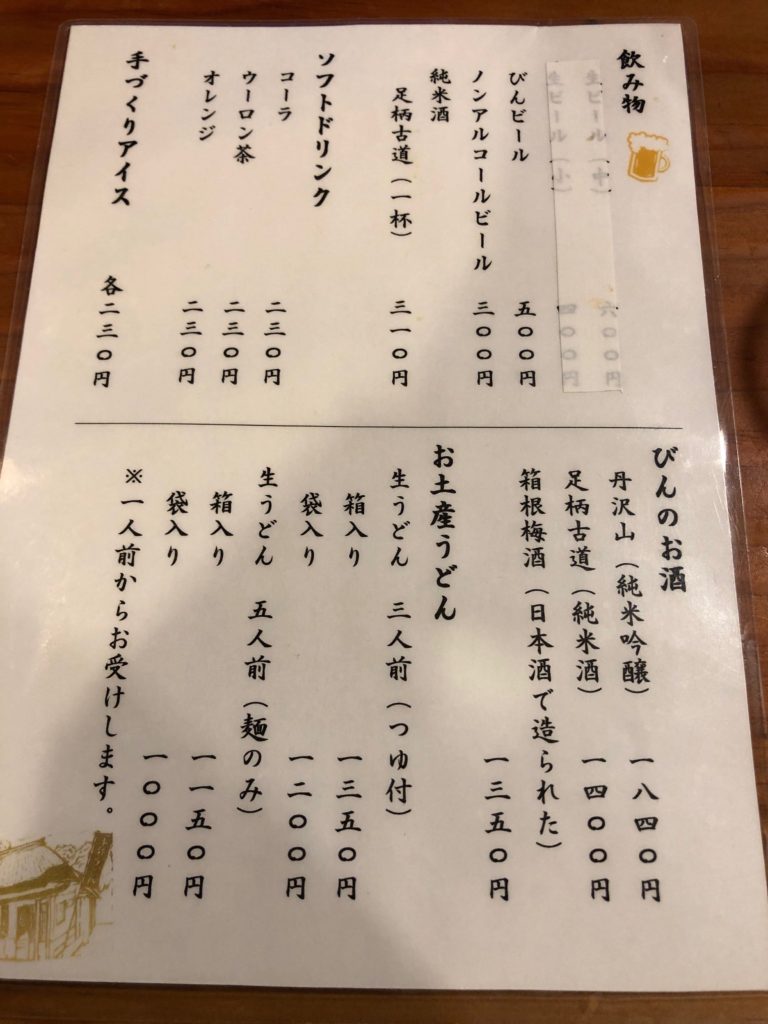 飲み物
生ビール（中）
六〇〇円
生ビール（小）
四〇〇円
びんビール
五〇〇円
ノンアルコールビール
三〇〇円
純米酒
足柄古道（一杯）
三一〇円
ソフトドリンク
コーラ
二三〇円
ウーロン茶
二三〇円
オレンジ
二三〇円
手づくりアイス
各二三〇円
びんのお酒
丹沢山（純米吟醸）
一八四〇円
足柄古道（純米酒）
一四〇〇円
箱根梅酒（日本酒で造られた）
一三五〇円
お土産うどん
生うどん 三人前（つゆ付）
箱入り
一三五〇円
袋入り
一二〇〇円
生うどん 五人前（麺のみ）
箱入り
一一五〇円
袋入り
一〇〇〇円
※一人前からお受けします。